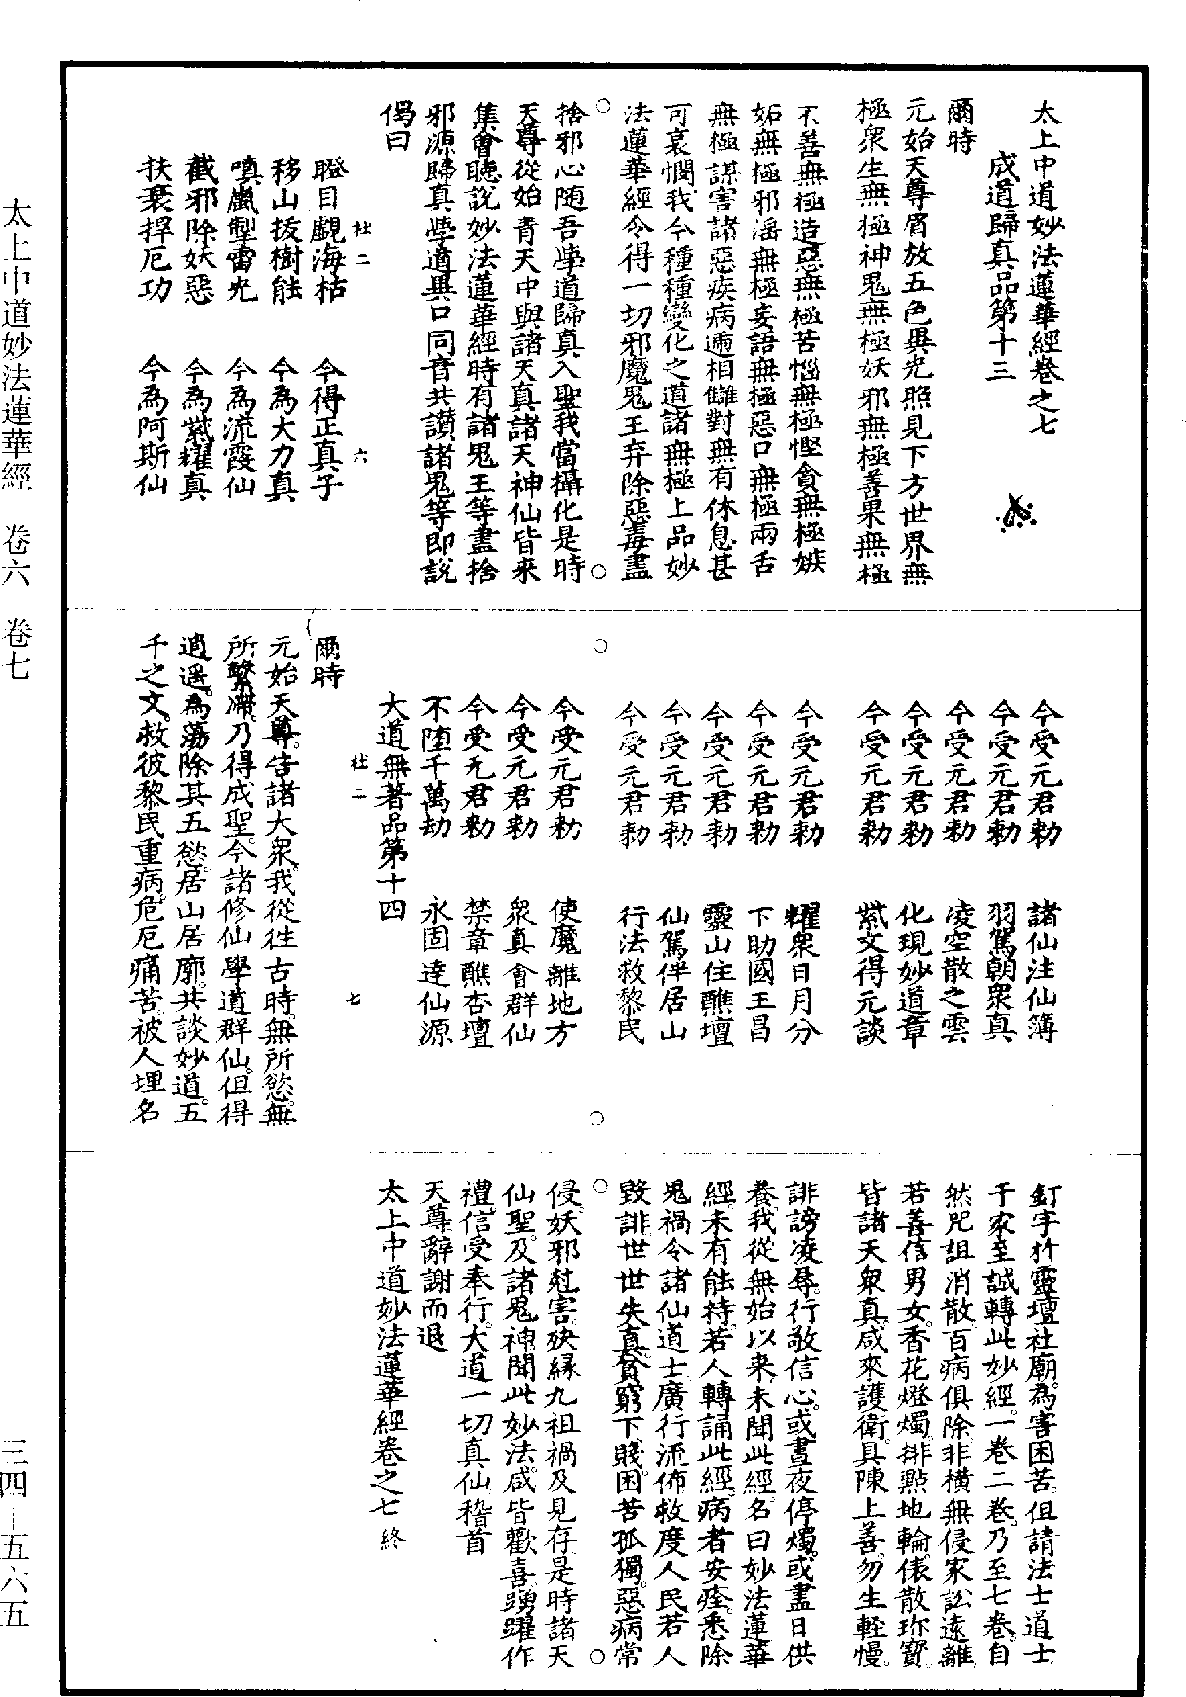 太上中道妙法蓮華經卷之七
成道歸真品第十三
爾時
元始天尊眉放五色異光照見下方世界無
極衆生無極神鬼無極妖邪無極善果無極
不善無極造惡無極苦惱無極慳貪無極嫉
妬無極邪滛無極妄語無極惡口無極兩舌
無極謀害諸惡疾病遞相讎對無有休息甚
可哀憫我今種種變化之道諸無極上品妙
法蓮華經令得一切邪魔鬼王弃除惡毒盡
捨邪心隨吾學道歸真入聖我當攝化是時
天尊從始青天中與諸天真諸天神仙皆來
集會聽說妙法蓮華經時有諸鬼王等盡捨
邪源歸真學道異口同音共讃諸鬼等即說
偈曰
瞪目覷海枯　今得正真子
杜二　六
移山拔樹能　今為大力真
嗔嵐掣雷光　今為流霞仙
截邪除妖惡　今為紫耀真
扶衰捍厄功　今為阿斯仙
今受元君勑　諸仙注仙簿
今受元君勑　羽駕朝衆真
今受元君勑　凌空散之雲
今受元君勑　化現妙道章
今受元君勑　紫文得元談
今受元君勑　耀衆日月分
今受元君勑　下助國王昌
今受元君勑　靈山住醮壇
今受元君勑　仙駕伴居山
今受元君勑　行法救黎民
今受元君勑　使魔離地方
今受元君勑　衆真會群仙
今受元君勑　禁章醮杏壇
不墮千萬劫　永固達仙源
大道無著品第十四
杜二　七
爾時
元始天尊。告諸大衆。我從徃古時。無所慾。無
所繫滯。乃得成聖。今諸修仙學道群仙。但得
逍遥。為蕩除其五慾。居山居廓。共談妙道。五
千之文。救彼黎民重病。危厄痛苦。被人埋名
釘字於靈壇社廟。為害困苦。但請法士道士
于家至誠轉此妙經。一卷二卷。乃至七卷。自
然咒詛消散。百病俱除。非横無侵。家訟遠離。
若善信男女。香花燈燭。排點地輪。俵散珎寶。
皆諸天衆真。咸來護衛。具陳上善。勿生輕慢。
誹謗凌辱。行敬信心。或晝夜停燭。或盡日供
養。我從無始以來。未聞此經。名曰妙法蓮華
經。未有能持。若人轉誦此經。病者安痊。悉除
鬼禍。令諸仙道士廣行流佈。救度人民。若人
毀誹。世世失真。貧窮下賤。困苦孤獨。惡病常
侵。妖邪尅害。殃緣九祖。禍及見存。是時諸天
仙聖。及諸鬼神。聞此妙法。咸皆歡喜。踴躍作
禮。信受奉行。大道一切真仙稽首
天尊。辭謝而退
太上中道妙法蓮華經卷之七終
太上中道妙法蓮華經　卷六　卷七
三四－五六五